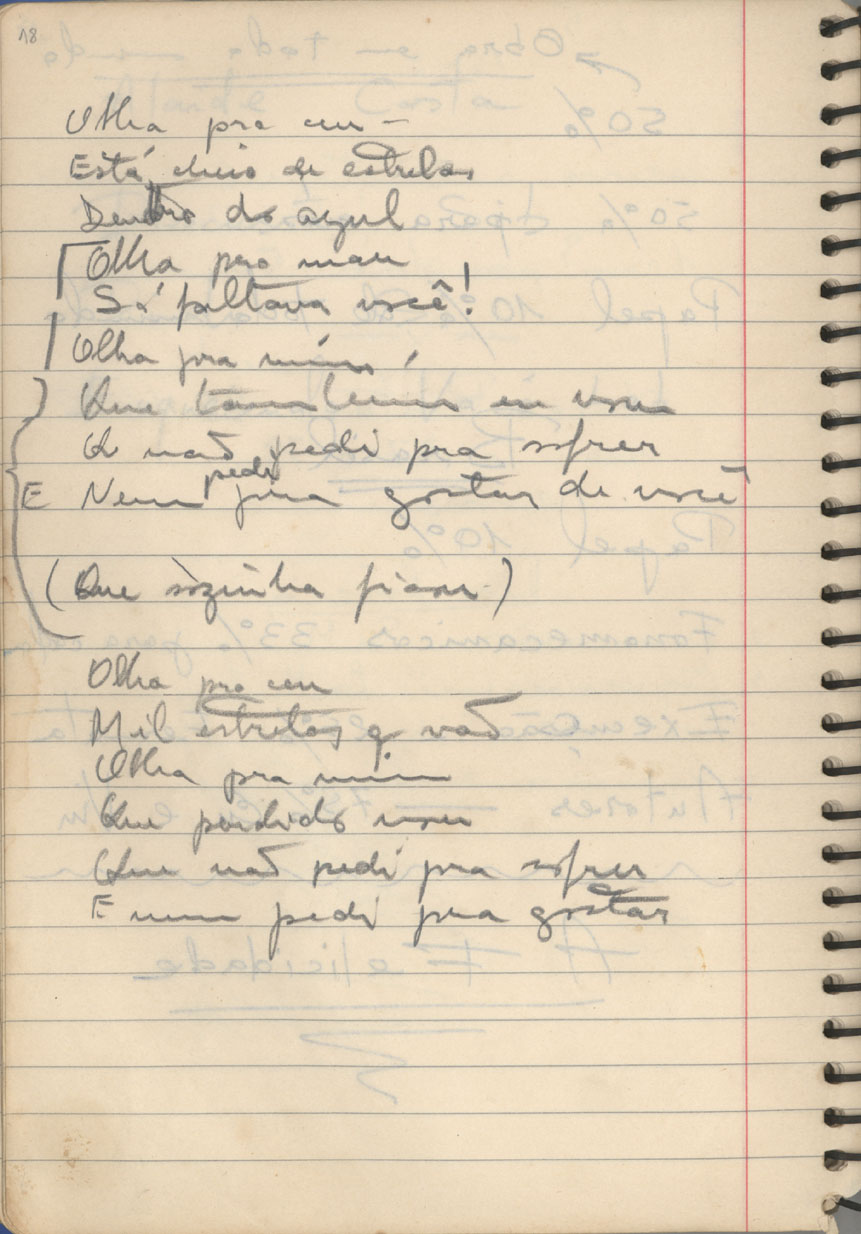 18
Olha pro ceu –
Está cheio de estrelas
Dentro do azul
Olha pro mar
Só faltava você!
Olha pra mim
Que também eu vou
Q não pedi pra sofrer
E Nem pedi pra gostar de você
(Que sòzinha ficou)
Olha pro ceu
Mil estrelas q vão
Olha pra mim
Que perdido vou
Que não pedi pra sofrer
E nem pedi pra gostar